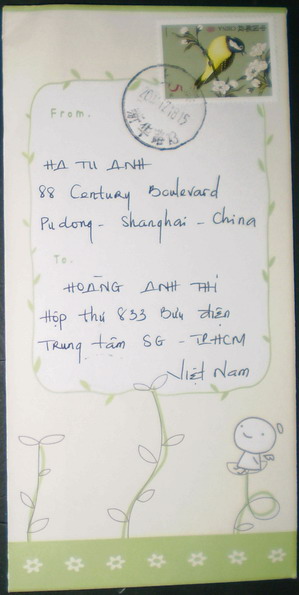 中国邮政 CHINA
From.
HA TU ANH
88 Century Boulevard
Pudong - Shanghai - China
To.
HOÀNG ANH THI
Hộp thư 833 Bưu điện
Trung tâm SG - TPHCM
Việt Nam